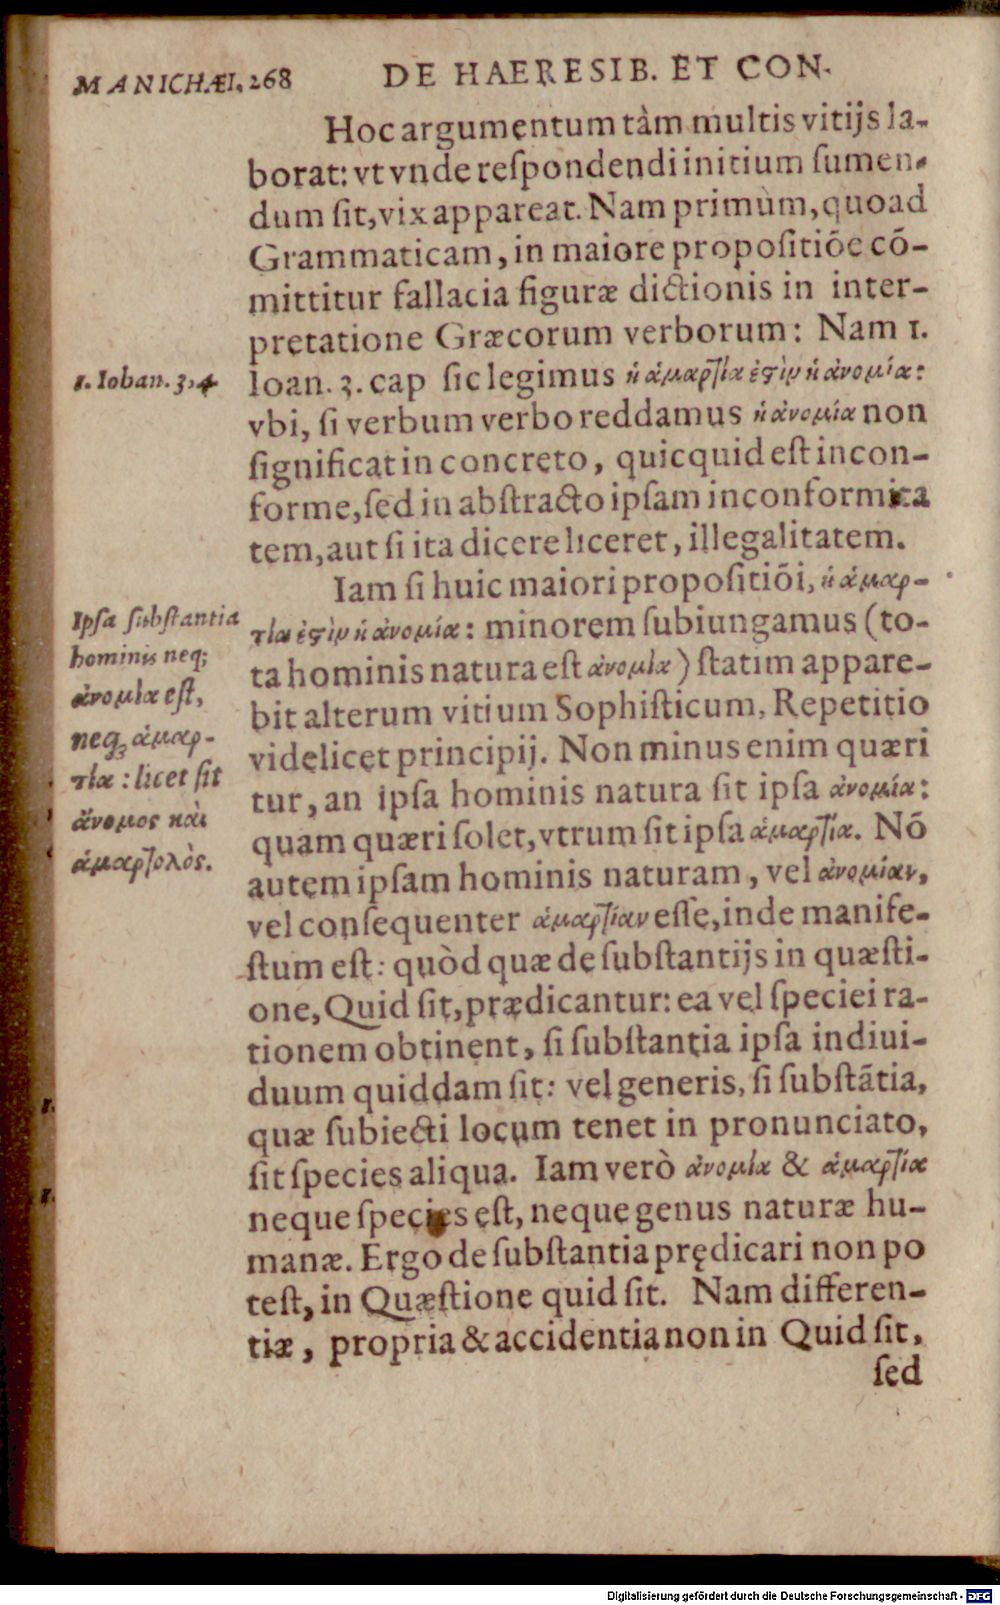 MANICHÆI. 268 DE HAERESIB. ET CON.
Hoc argumentum tàm multis vitijs la-
borat: vt vnde reſpondendi initium ſumen-
dum ſit, vix appareat. Nam primùm, quoad
Grammaticam, in maiore propoſitiōe cō-
mittitur fallacia figuræ dictionis in inter-
pretatione Græcorum verborum: Nam 1.
Ioan. 3. cap ſic legimus ἡ ἁμαρτία ἐςὶν ἡ ἀνομία:
vbi, ſi verbum verbo reddamus ἡ ἀνομία non
ſignificat in concreto, quicquid eſt incon-
forme, ſed in abſtracto ipſam inconformita
tem, aut ſi ita dicere liceret, illegalitatem.
Iam ſi huic maiori propoſitiōi, ἡ ἁμαρ-
τία ἐςὶν ἡ ἀνομία: minorem ſubiungamus (to-
ta hominis natura eſt ἀνομία) ſtatim appare-
bit alterum vitium Sophiſticum, Repetitio
videlicet principij. Non minus enim quæri
tur, an ipſa hominis natura ſit ipſa ἀνομία:
quam quæri ſolet, vtrum ſit ipſa ἁμαρτία. Nō
autem ipſam hominis naturam, vel ἀνομίαν,
vel conſequenter ἁμαρτίαν eſſe, inde manife-
ſtum eſt: quòd quæ de ſubſtantijs in quæſti-
one, Quid ſit, prædicantur: ea vel ſpeciei ra-
tionem obtinent, ſi ſubſtantia ipſa indiui-
duum quiddam ſit: vel generis, ſi ſubſtātia,
quæ ſubiecti locum tenet in pronunciato,
ſit ſpecies aliqua. Iam verò ἀνομία & ἁμαρτία
neque ſpecies eſt, neque genus naturæ hu-
manæ. Ergo de ſubſtantia prędicari non po
teſt, in Quæſtione quid ſit. Nam differen-
tiæ, propria & accidentia non in Quid ſit,
ſed
1. Iohan. 3, 4
Ipſa ſubſtantia
hominis neq;
ἀνομία eſt,
neq; ἁμαρ-
τία: licet ſit
ἄνομος καὶ
ἁμαρτολὸς.
1.
1.
Digitalisierung gefördert durch die Deutsche Forschungsgemeinschaft - DFG